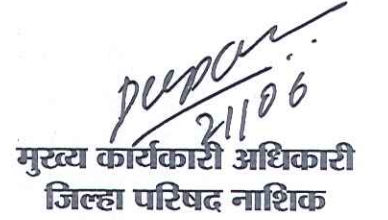 21/06
मुख्य कार्यकारी अधिकारी
जिल्हा परिषद नाशिक